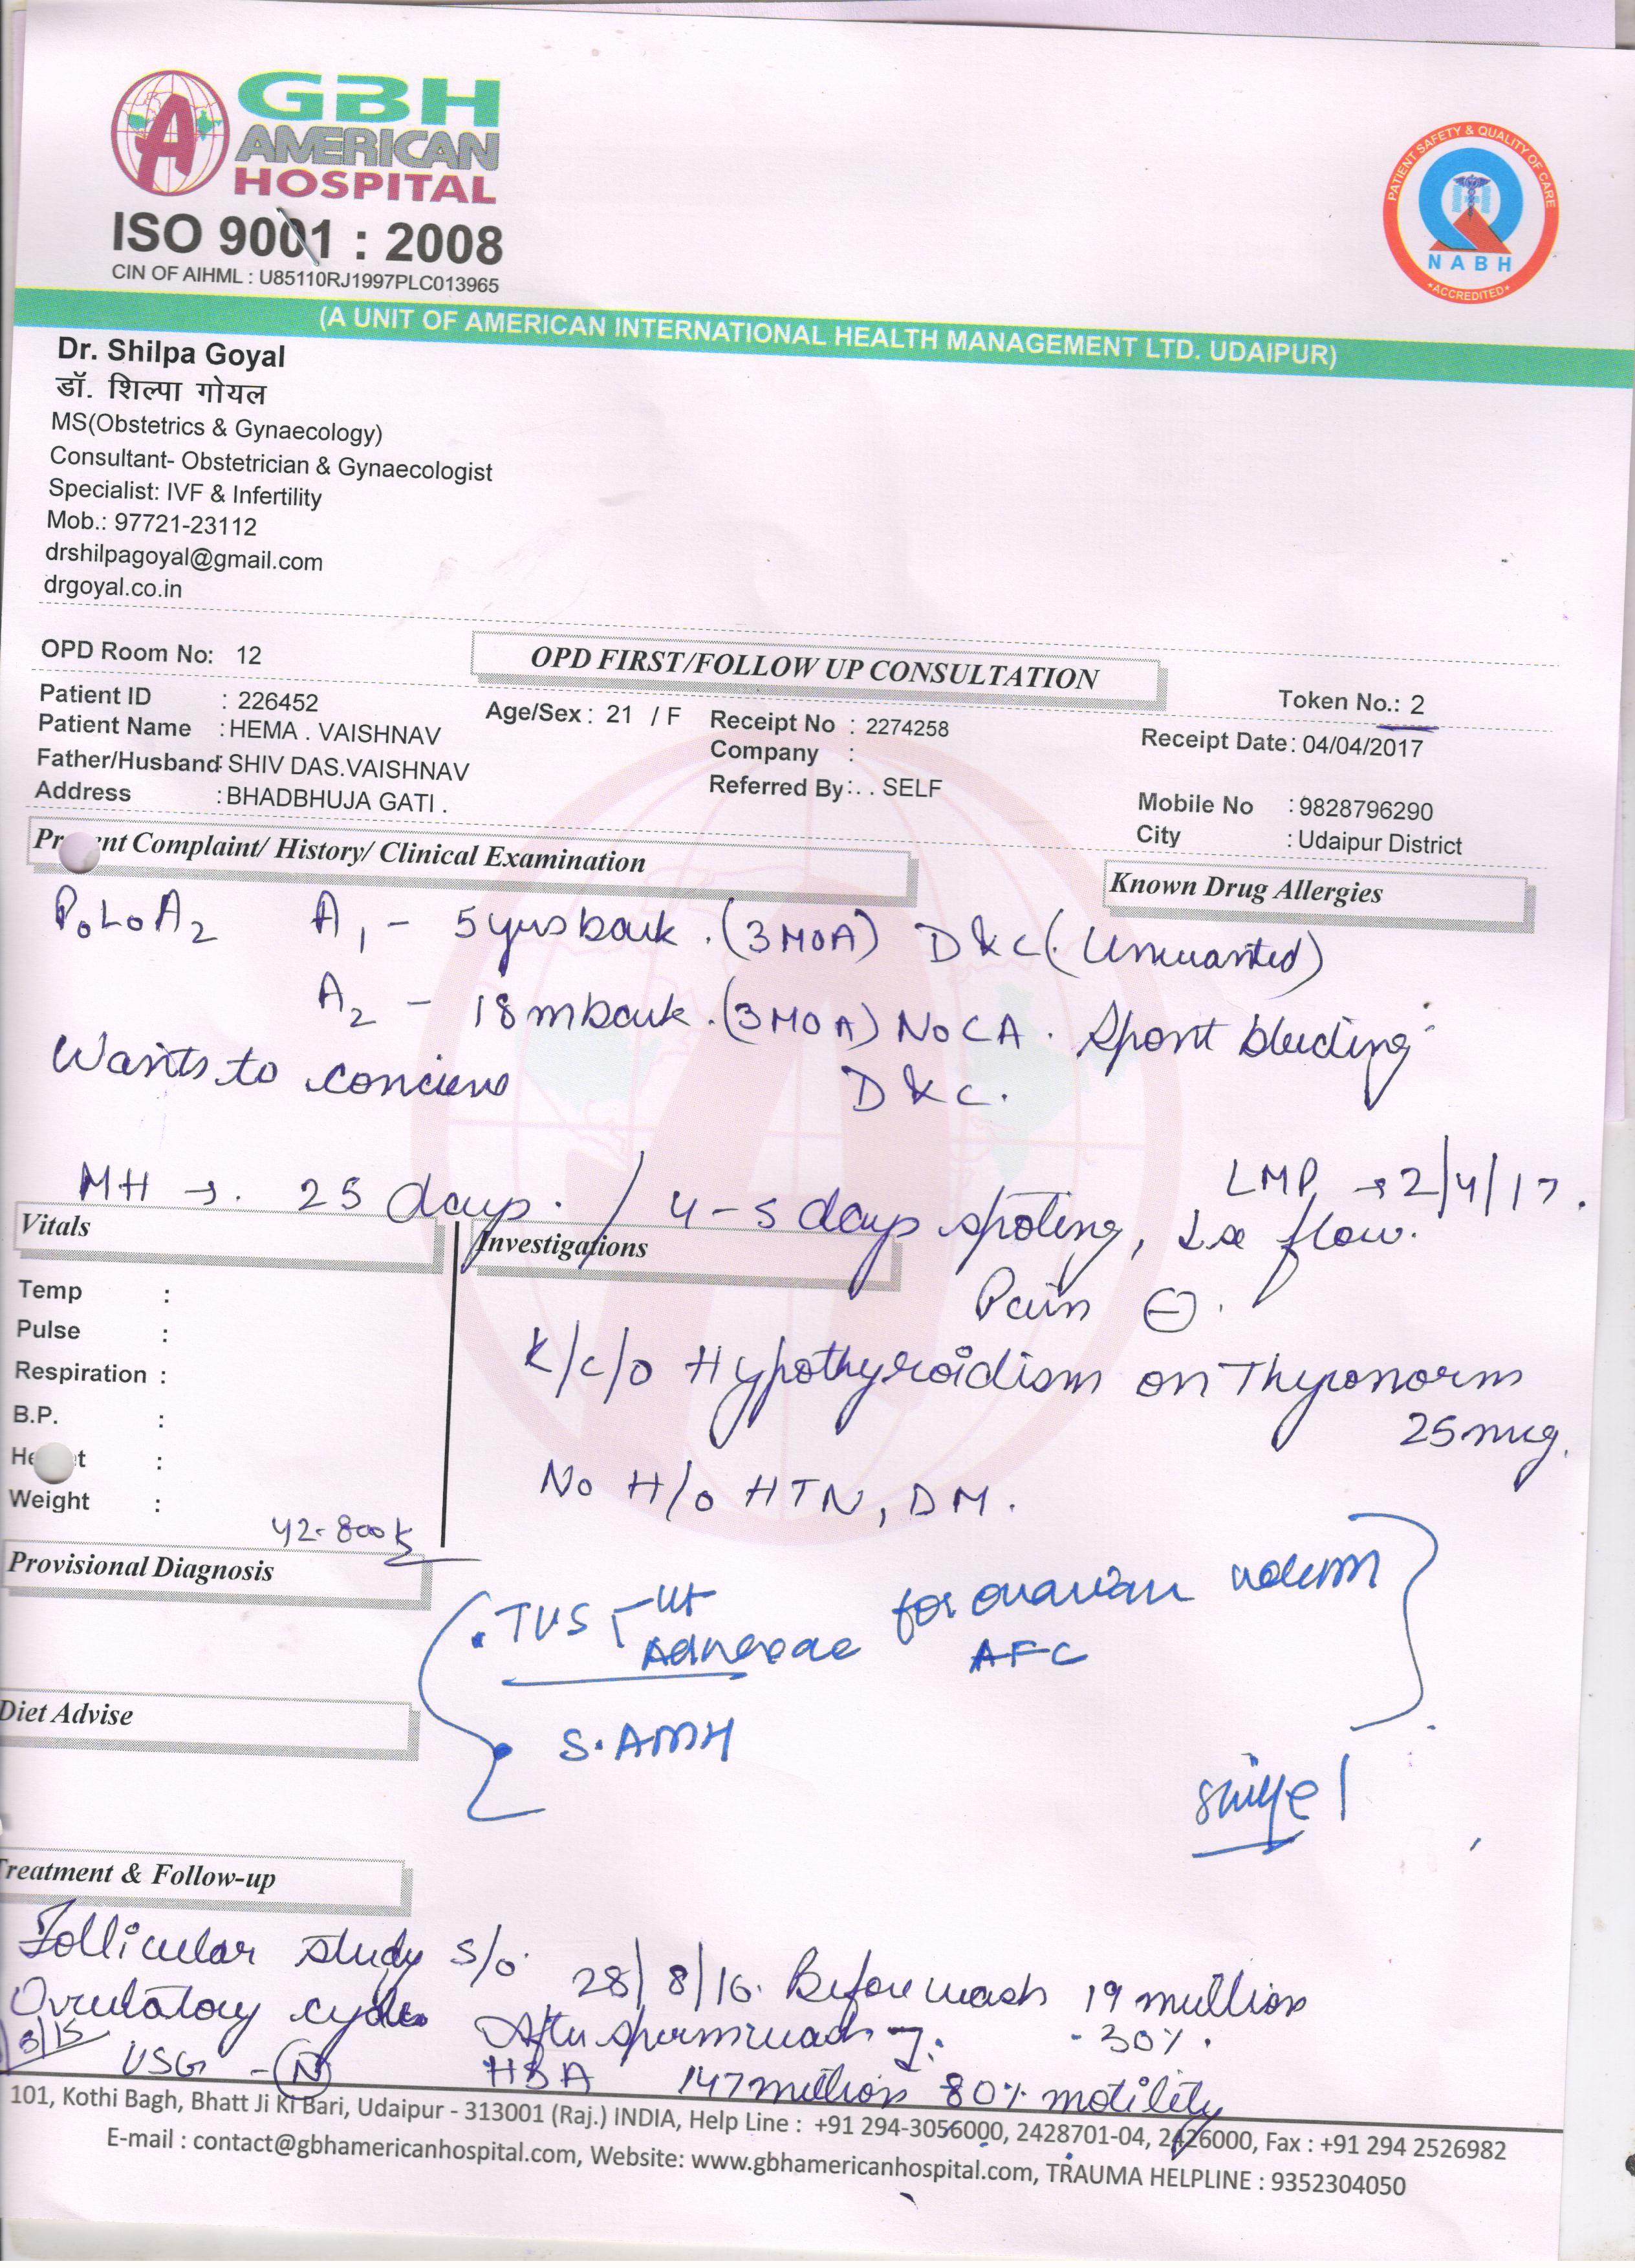 GBH
AMERICAN
HOSPITAL
ISO 9001 : 2008
CIN OF AIHML : U85110RJ1997PLC013965
PATIENT SAFETY & QUALITY OF CARE
NABH
ACCREDITED
(A UNIT OF AMERICAN INTERNATIONAL HEALTH MANAGEMENT LTD. UDAIPUR)
Dr. Shilpa Goyal
डॉ. शिल्पा गोयल
MS(Obstetrics & Gynaecology)
Consultant- Obstetrician & Gynaecologist
Specialist: IVF & Infertility
Mob.: 97721-23112
drshilpagoyal@gmail.com
drgoyal.co.in
OPD Room No: 12
OPD FIRST/FOLLOW UP CONSULTATION
Token No.: 2
Patient ID : 226452
Age/Sex : 21 / F
Receipt No : 2274258
Receipt Date: 04/04/2017
Patient Name : HEMA . VAISHNAV
Company :
Father/Husband : SHIV DAS.VAISHNAV
Referred By : . . SELF
Mobile No : 9828796290
Address : BHADBHUJA GATI .
City : Udaipur District
Present Complaint/ History/ Clinical Examination
Known Drug Allergies
P0L0A2 A1 - 5 yrs back . (3 MOA) D&C (Unwanted)
A2 - 18 m back . (3 MOA) No CA . Spont bleeding
Wants to concieve D&C.
LMP → 2/4/17.
MH → . 25 days . / 4-5 days spoting, flow.
Vitals
Investigations
Pain ⊖ .
Temp :
Pulse :
Respiration :
B.P. :
Height :
Weight :
42.800k
K/c/o Hypothyroidism on Thyronorm
25 mcg.
No H/o HTN, DM.
Provisional Diagnosis
TVS Ut Adnexae for ovarian volum
AFC
Diet Advise
S. AMH
Treatment & Follow-up
Follicular study s/o
Ovulatory cycle
28/8/16. Before wash 19 million
After sperm wash - 30%.
USG - N
HSA 147 million 80% motility
101, Kothi Bagh, Bhatt Ji Ki Bari, Udaipur - 313001 (Raj.) INDIA, Help Line : +91 294-3056000, 2428701-04, 2426000, Fax : +91 294 2526982
E-mail : contact@gbhamericanhospital.com, Website: www.gbhamericanhospital.com, TRAUMA HELPLINE : 9352304050